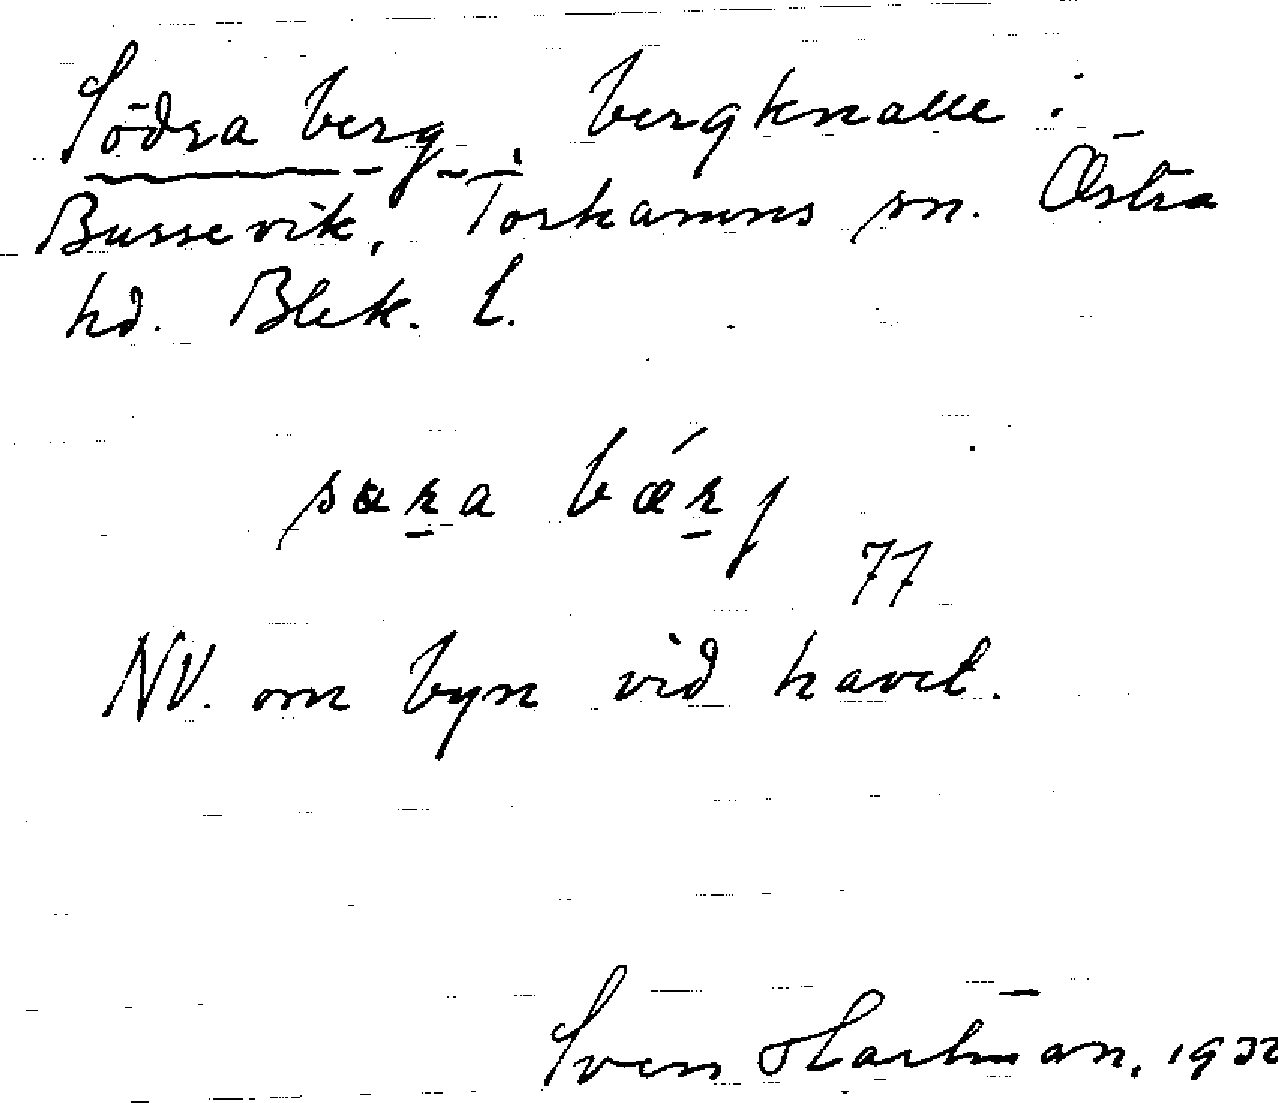 Södra berg, bergknalle i
Bussevik, Torhamns sn. Östra
hd. Blek. l.
særa bærj
77
NV. om byn vid havet.
Sven Hartman, 1932